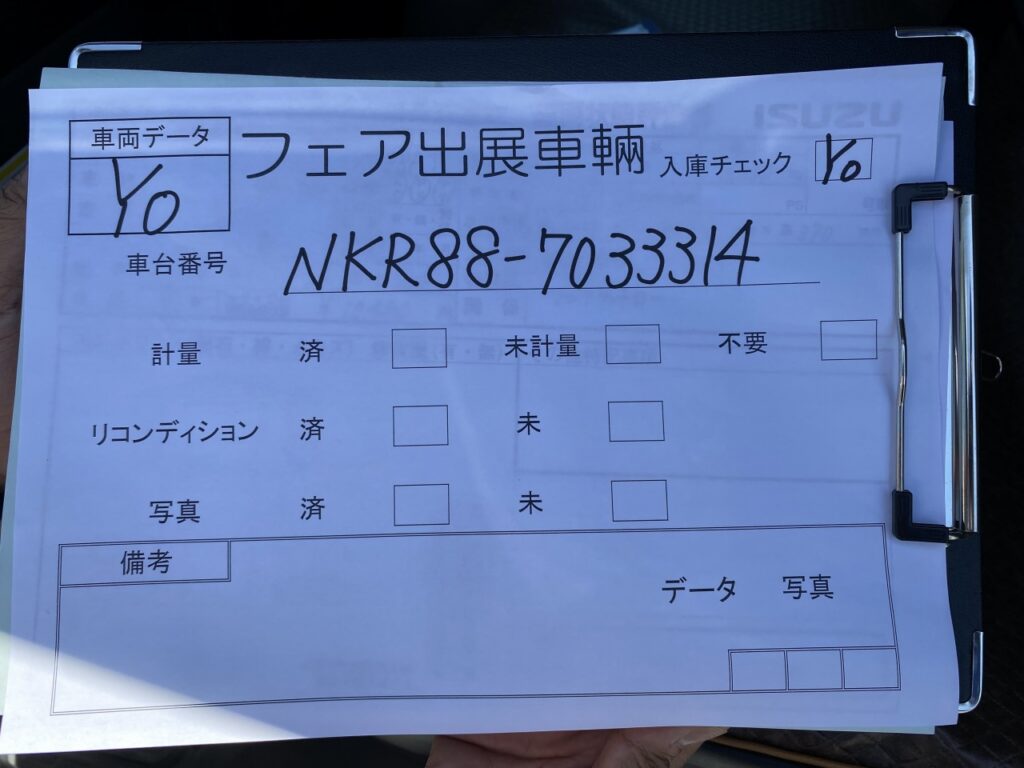 車両データ
Yo
フェア出展車輛 入庫チェック Yo
車台番号 NKR88-7033314
計量 済 未計量 不要
リコンディション 済 未
写真 済 未
備考
データ 写真
ISUZU